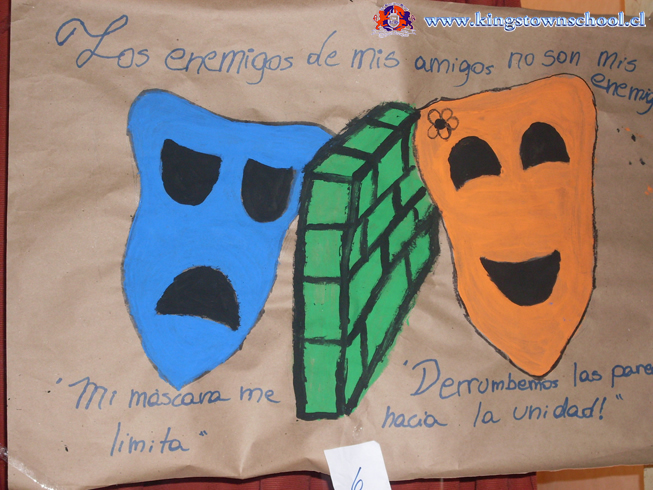 www.kingstownschool.cl
Los enemigos de mis amigos no son mis
enemig
"Mi máscara me
limita"
"Derrumbemos las pare
hacia la unidad!"
6